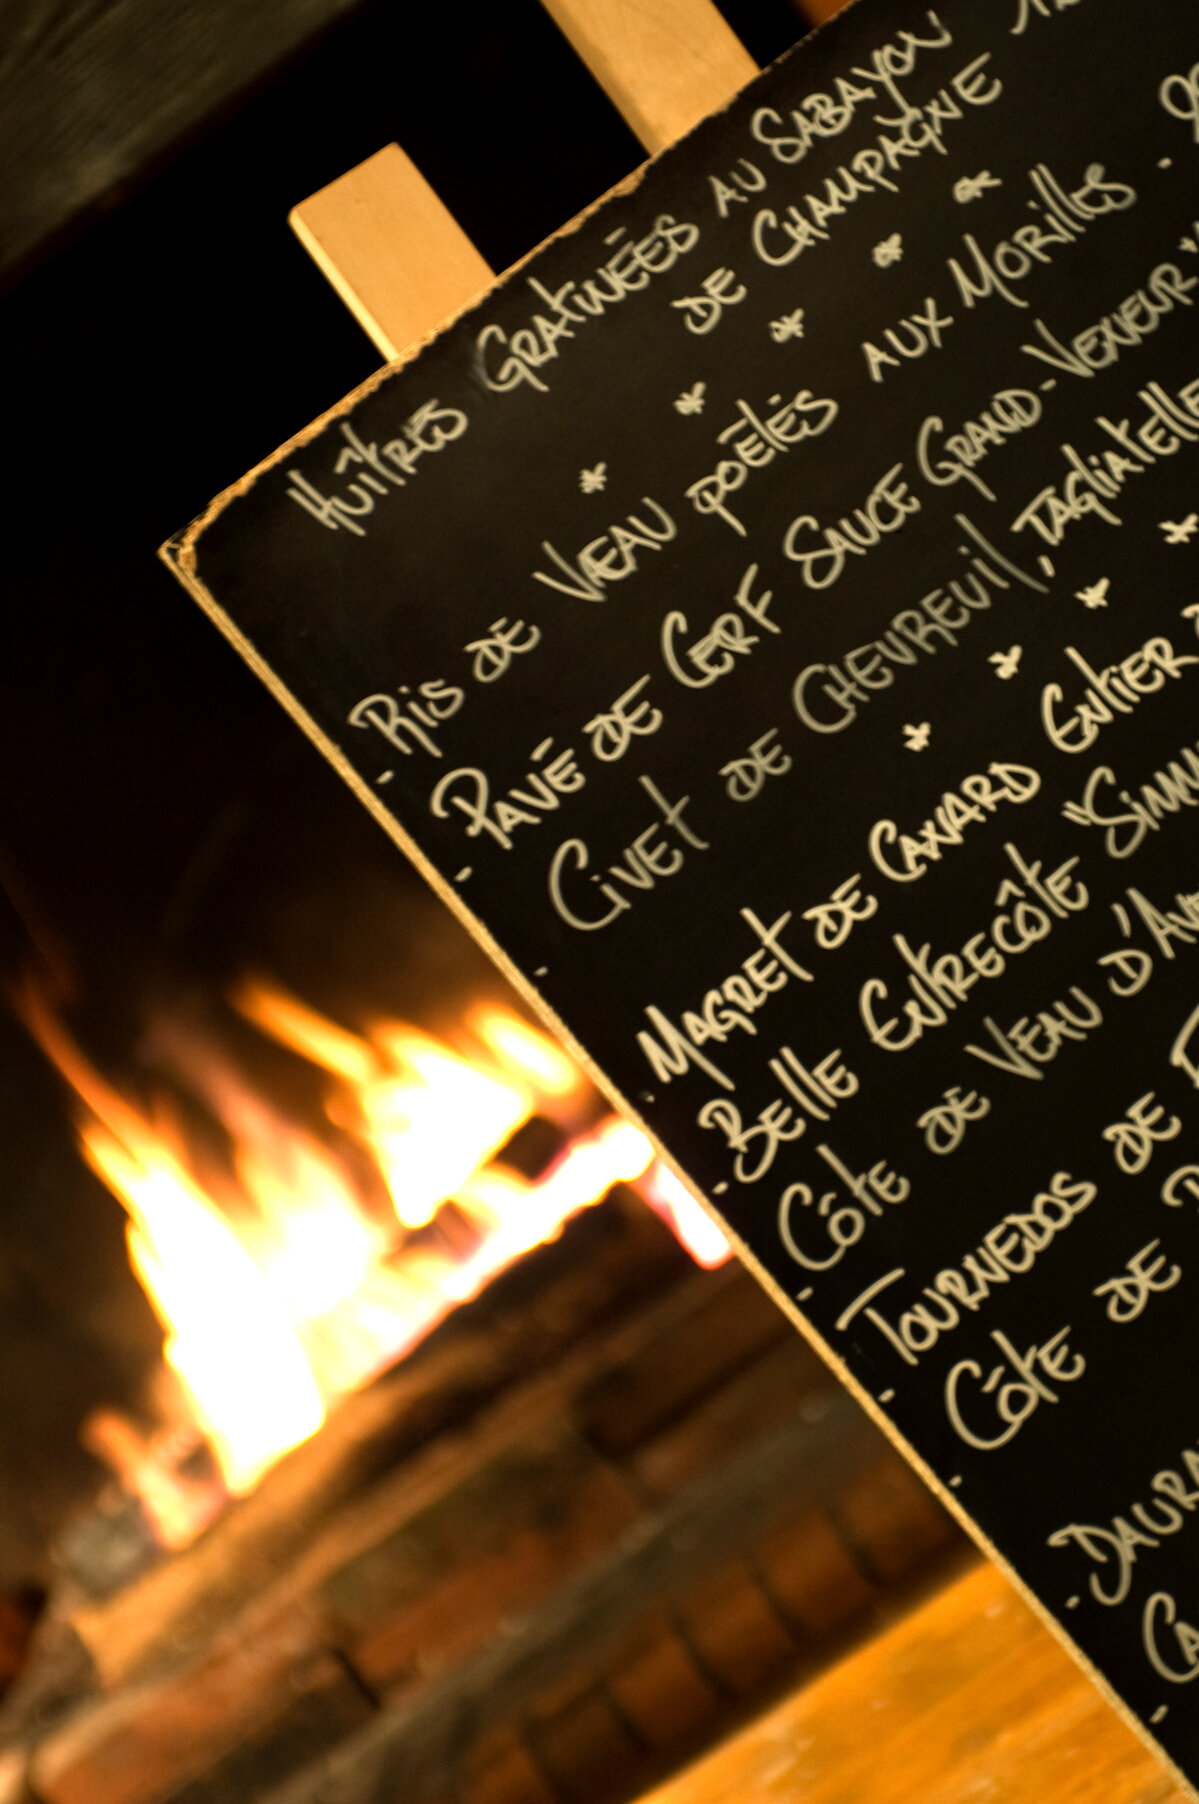 Huîtres Gratinées au Sabayon
de Champagne
* * * * *
- Ris de Væau poêlés aux Morilles -
- Pavé de Cerf Sauce Grand-Veneur
Civet de Chevreuil, tagliatelle
* * * *
- Magret de Canard Entier
- Belle Entrecôte "Simm
- Côte de Veau d'Av
- Tournedos de
- Côte de
- Daura
- Ca